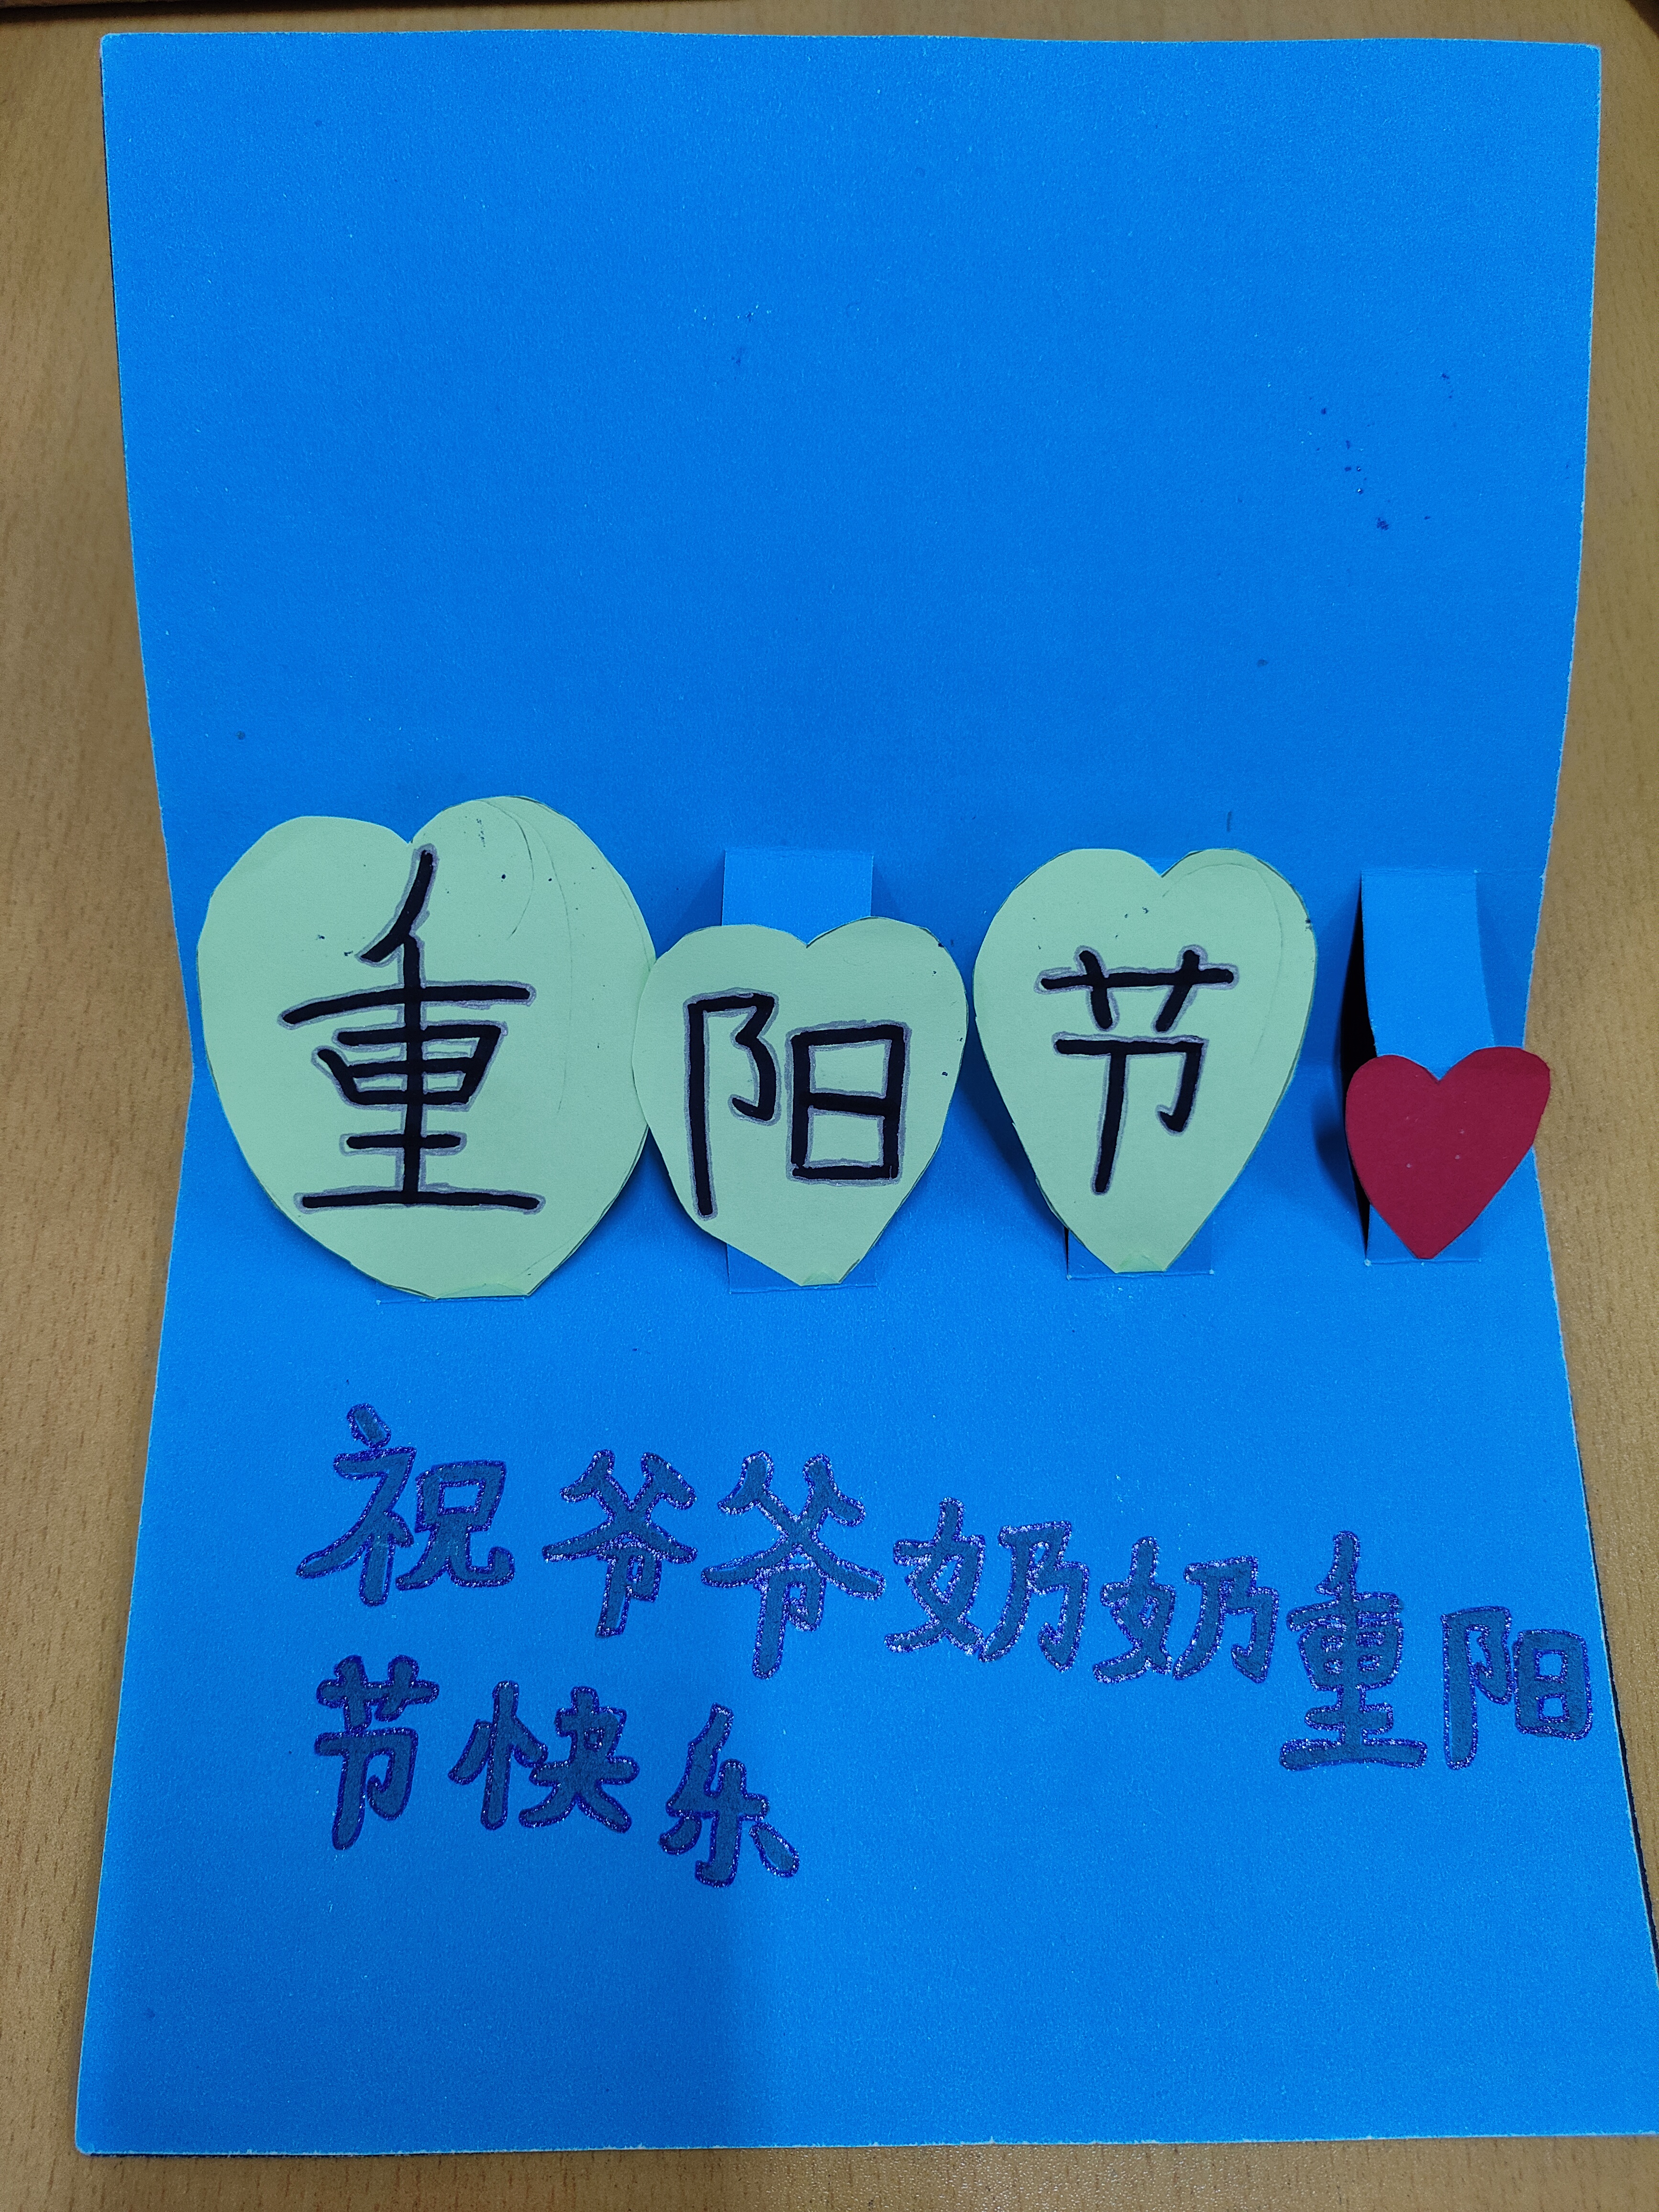 重阳节
祝爷爷奶奶重阳
节快乐